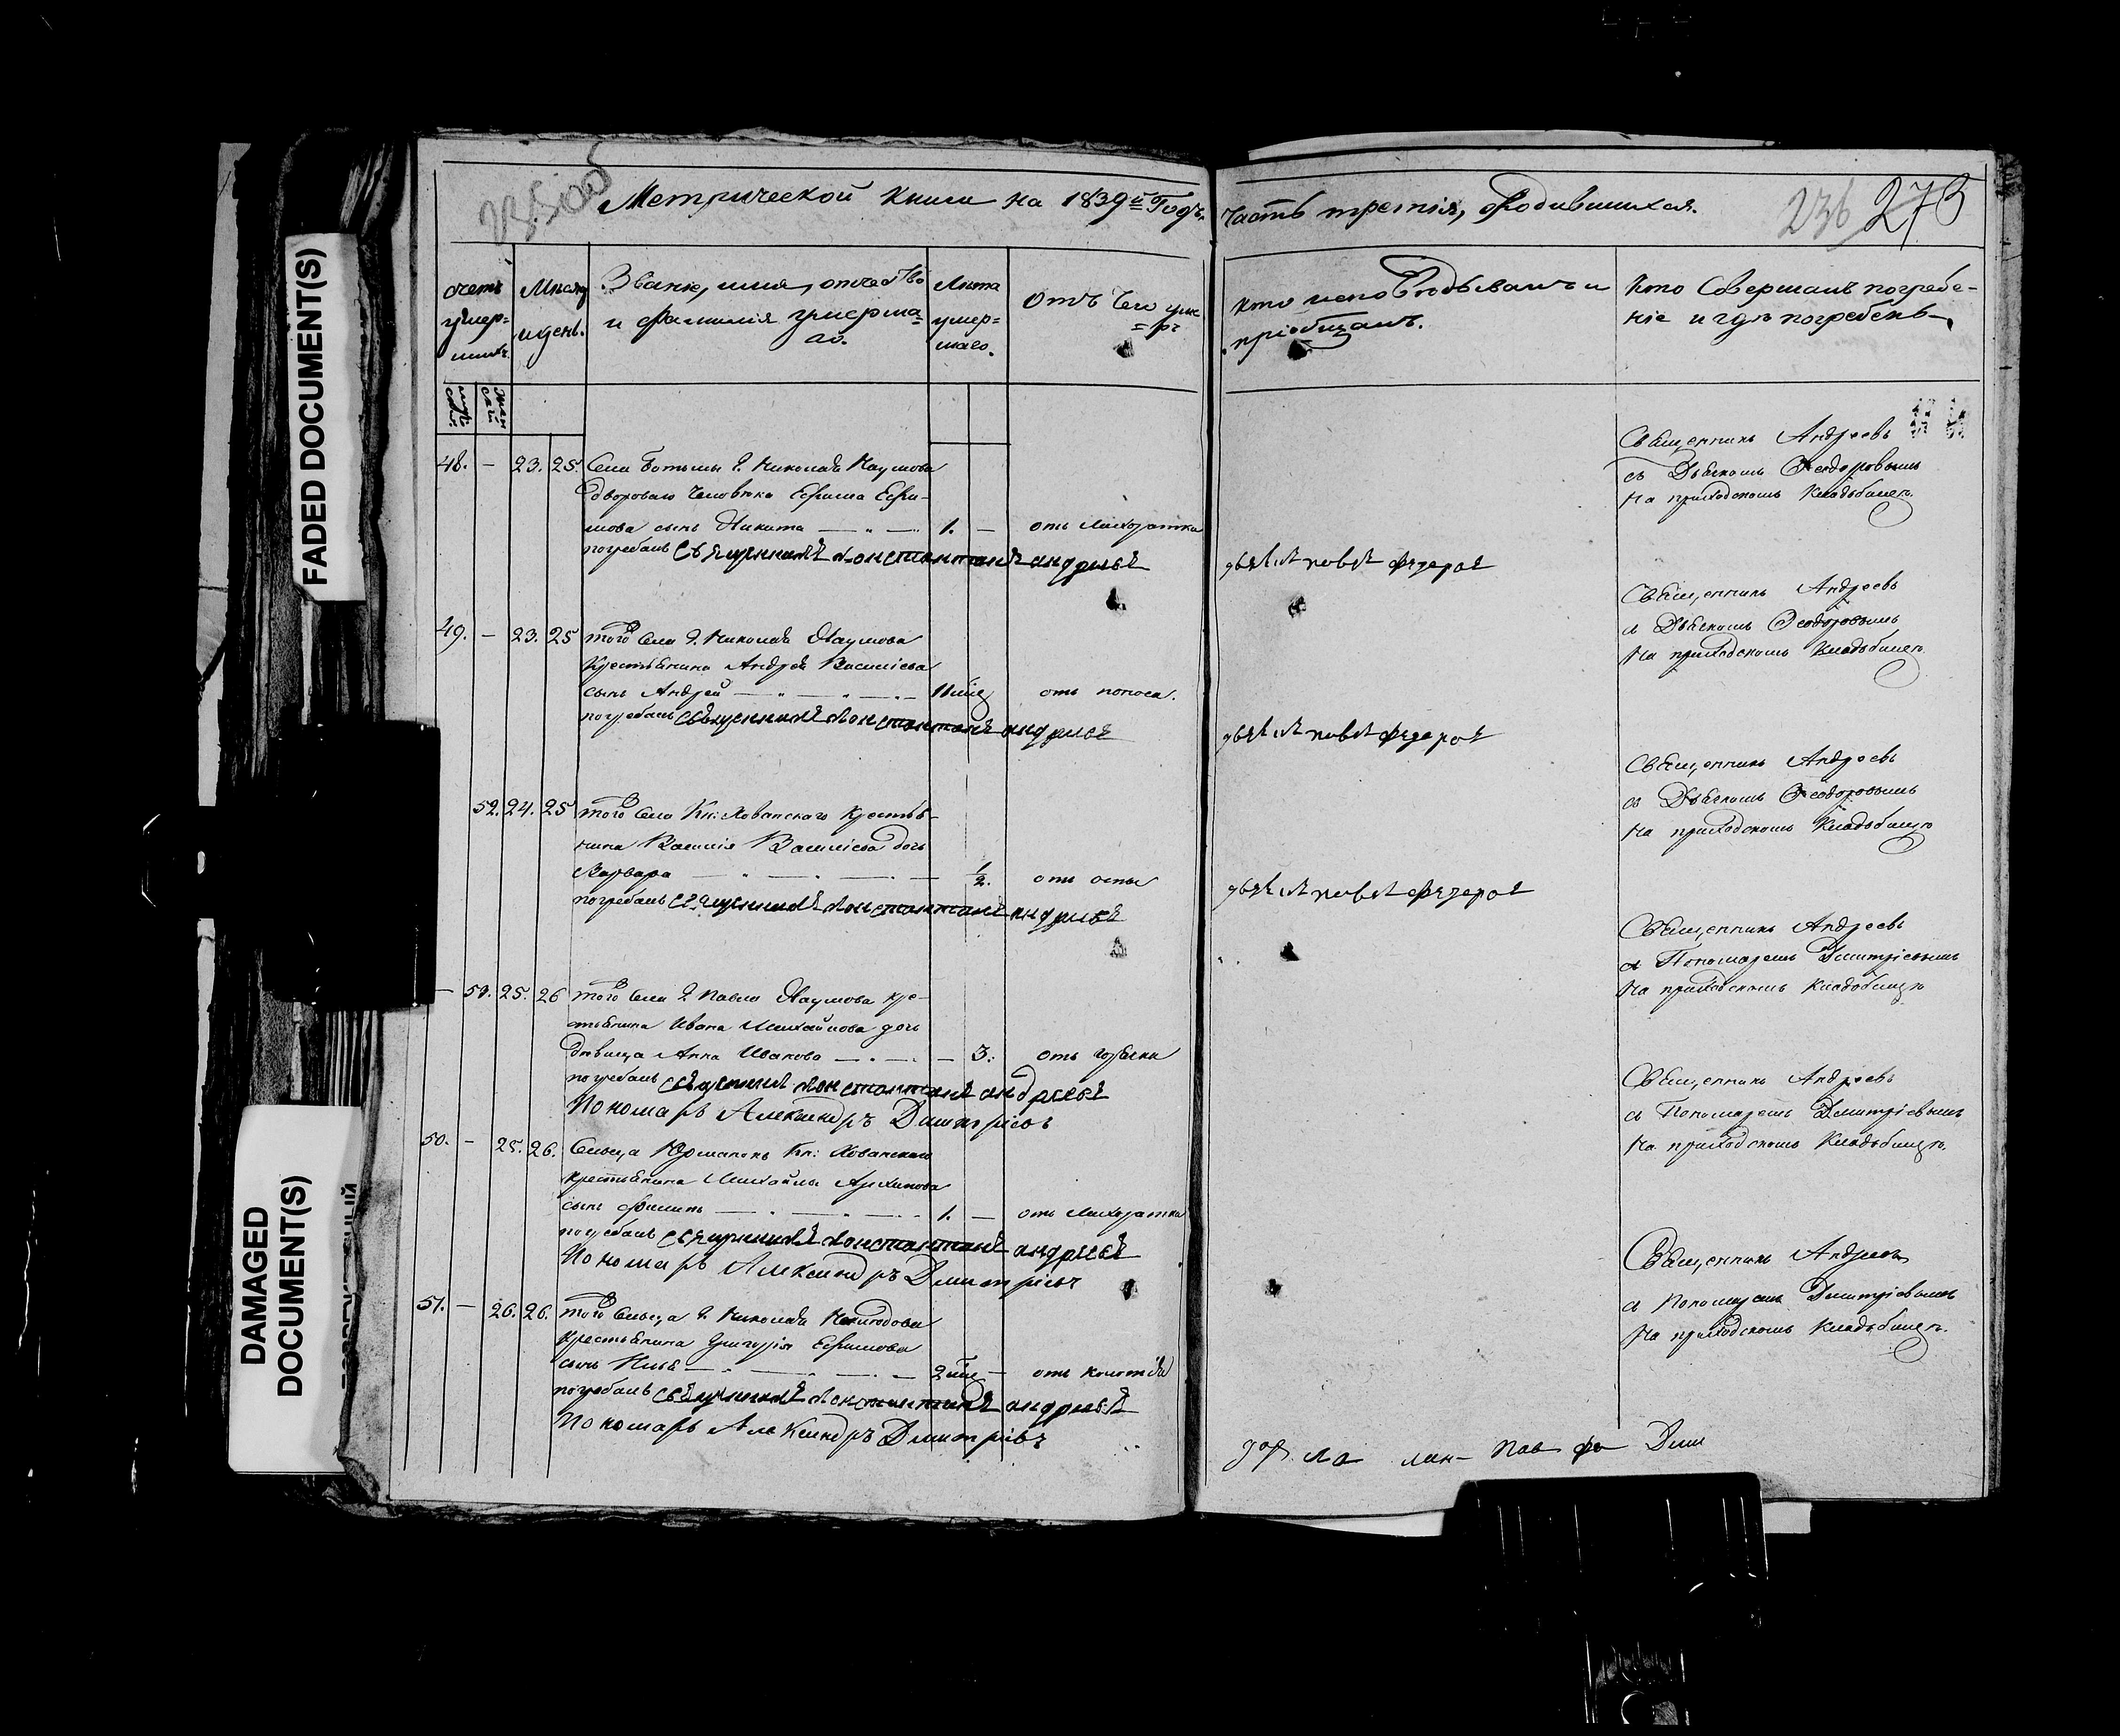 FADED DOCUMENT(S)
DAMAGED
DOCUMENT(S)
Метрической книги на 1839й Годъ
часть третія,
236 273
счетъ умер-
шихъ.
и день.
Званіе, имя, отчество
и фамилія умерша=
го.
Лѣта
умер=
шаго.
Отъ чего уме
=ръ
Кто исповѣдывалъ и
пріобщалъ.
Кто совершалъ погребе-
ніе и гдѣ погребенъ
48. - 23. 25. Села Г. Николая Наумова
двороваго человѣка Ефима Ефи-
мова сынъ Никита 1. -
погребалъ священникъ константинъ андреевъ
Священникъ Андреевъ
съ Дьячкомъ Ѳеодоровымъ
На приходскомъ Кладбищѣ.
49. - 23. 25 того села Г. Николая Наумова
Крестьянина Андрея Васильева
сынъ Андрей отъ поноса.
погребалъ священникъ константинъ андреевъ
Священникъ Андреевъ
съ Дьячкомъ Ѳеодоровымъ
На приходскомъ Кладбищѣ
52. 24. 25 того села Кн: Хованскаго Крестья-
нина Василія Васильева дочь
Варвара 1/2. отъ оспы
погребалъ священникъ константинъ андреевъ
Священникъ Андреевъ
съ Дьячкомъ Ѳеодоровымъ
На приходскомъ Кладбищѣ
- 25. 26 того села Г. Павла Наумова кре-
стьянина Ивана Михайлова дочь
дѣвица Анна Иванова - 3. отъ горячки
погребалъ священникъ константинъ андреевъ
Пономарь Александръ Дмитріевъ
Священникъ Андреевъ
съ Пономаремъ Дмитріевымъ
На приходскомъ Кладбищѣ
50. - 25. 26. Сельца Кн: Хованскаго
крестьянина Михайлы Архипова
сынъ Филипъ 1. -
погребалъ священникъ константинъ андреевъ
Пономарь Александръ Дмитріевъ
Священникъ Андреевъ
съ Пономаремъ Дмитріевымъ
На приходскомъ Кладбищѣ.
51. - 26. 26. того сельца Г. Николая
крестьянина Григорія Ефимова
сынъ Илья
погребалъ священникъ константинъ андреевъ
Пономарь Александръ Дмитріевъ
Священникъ Андреевъ
съ Пономаремъ Дмитріевымъ
На приходскомъ Кладбищѣ.